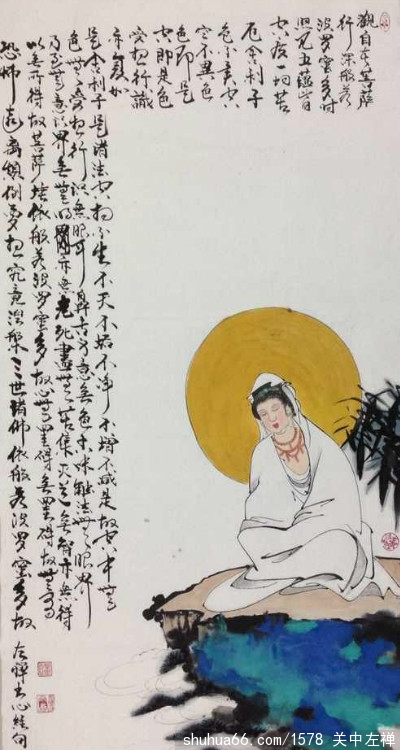 觀自在菩薩
行深般若
波罗蜜多时
照见五蕴皆
空度一切苦
厄舍利子
色不異空
空不異色
色即是
空即是色
受想行識
亦復如
是舍利子是诸法空相不生不灭不垢不净不增不减是故空中無
色無受想行识無眼耳鼻舌身意無色声香味触法無眼界
乃至無意识界無無明亦無老死盡無苦集灭道無智亦無得
以無所得故菩萨埵依般若波罗蜜多故心無罣碍無罣碍故無有
恐怖遠离顛倒夢想究竟涅槃三世诸佛依般若波罗蜜多故
左禅书心经句
shuhua66.com/1578 关中左禅